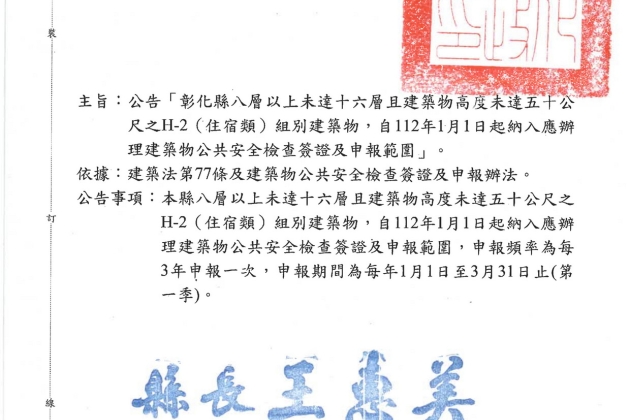 裝
主旨：公告「彰化縣八層以上未達十六層且建築物高度未達五十公
尺之H-2（住宿類）組別建築物，自112年1月1日起納入應辦
理建築物公共安全檢查簽證及申報範圍」。
依據：建築法第77條及建築物公共安全檢查簽證及申報辦法。
訂
公告事項：本縣八層以上未達十六層且建築物高度未達五十公尺之
H-2（住宿類）組別建築物，自112年1月1日起納入應辦
理建築物公共安全檢查簽證及申報範圍，申報頻率為每
3年申報一次，申報期間為每年1月1日至3月31日止(第
一季)。
線
縣長王惠美